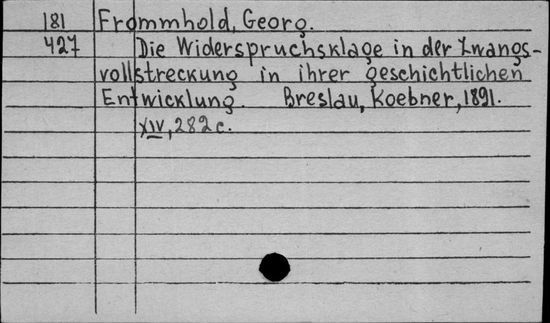 181 Frommhold, Georg.
427 Die Widerspruchsklage in der Zwangs-
vollstreckung in ihrer geschichtlichen
Entwicklung. Breslau, Koebner, 1891.
XIV, 282 c.